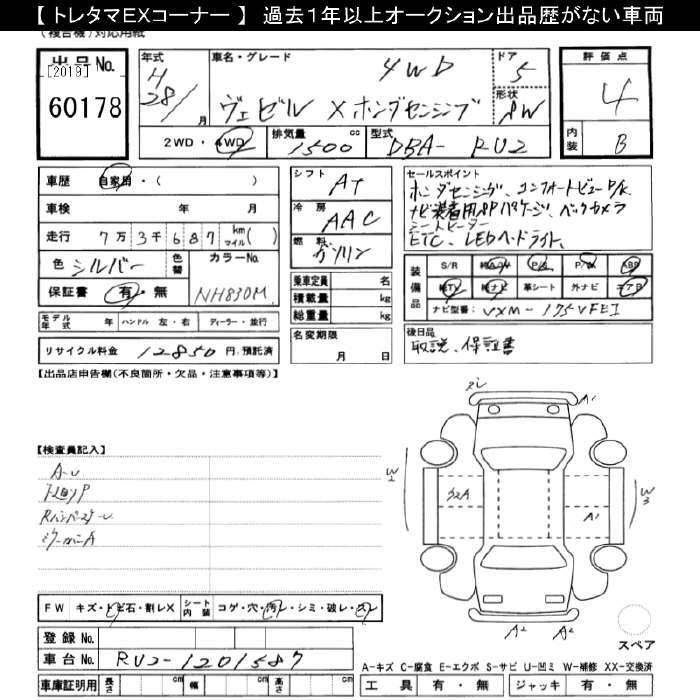 【 トレタマEXコーナー 】 過去1年以上オークション出品歴がない車両
(複合機)対応用紙
出品No.
[2019]
60178
年式 H28/ 月
車名・グレード 4WD
ヴェゼル X ホンダセンシング
ドア 5
形状 SW
評価点 4
内装 B
2WD・4WD
排気量 1500 cc
型式 DBA- RU2
車歴 自家用・( )
車検 年 月
走行 7万3千687 km マイル( )
色 シルバー
色替
カラーNo. NH830M
保証書 有・無
シフト AT
冷房 AAC
燃料 ガソリン
乗車定員 名
積載量 kg
総重量 kg
セールスポイント
ホンダセンシング、コンフォートビューP/K
ナビ装着用SPパッケージ、バックカメラ
シートヒーター
ETC、LEDヘッドライト、
装備品
S/R 純A/W P/S P/W ABS
純TV 純ナビ 革シート 外ナビ エアB
ナビ型番: VXM-175VFEI
モデル年式 年 ハンドル 左・右 ディーラー・並行
リサイクル料金 12850 円 預託済
名変期限 月 日
後日品
取説、保証書
【出品店申告欄(不良箇所・欠品・注意事項等)】
【検査員記入】
A-U
A1
W2
W3
A1
A2 A2
FW キズ・トビ石・割レX
シート内装 コゲ・穴・汚レ・シミ・破レ・スレ
登録No.
車台No. RU2-1201587
スペア
A-キズ C-腐食 E-エクボ S-サビ U-凹ミ W-補修 XX-交換済
車庫証明用 長さ cm 幅 cm 高さ cm
工具 有・無 ジャッキ 有・無